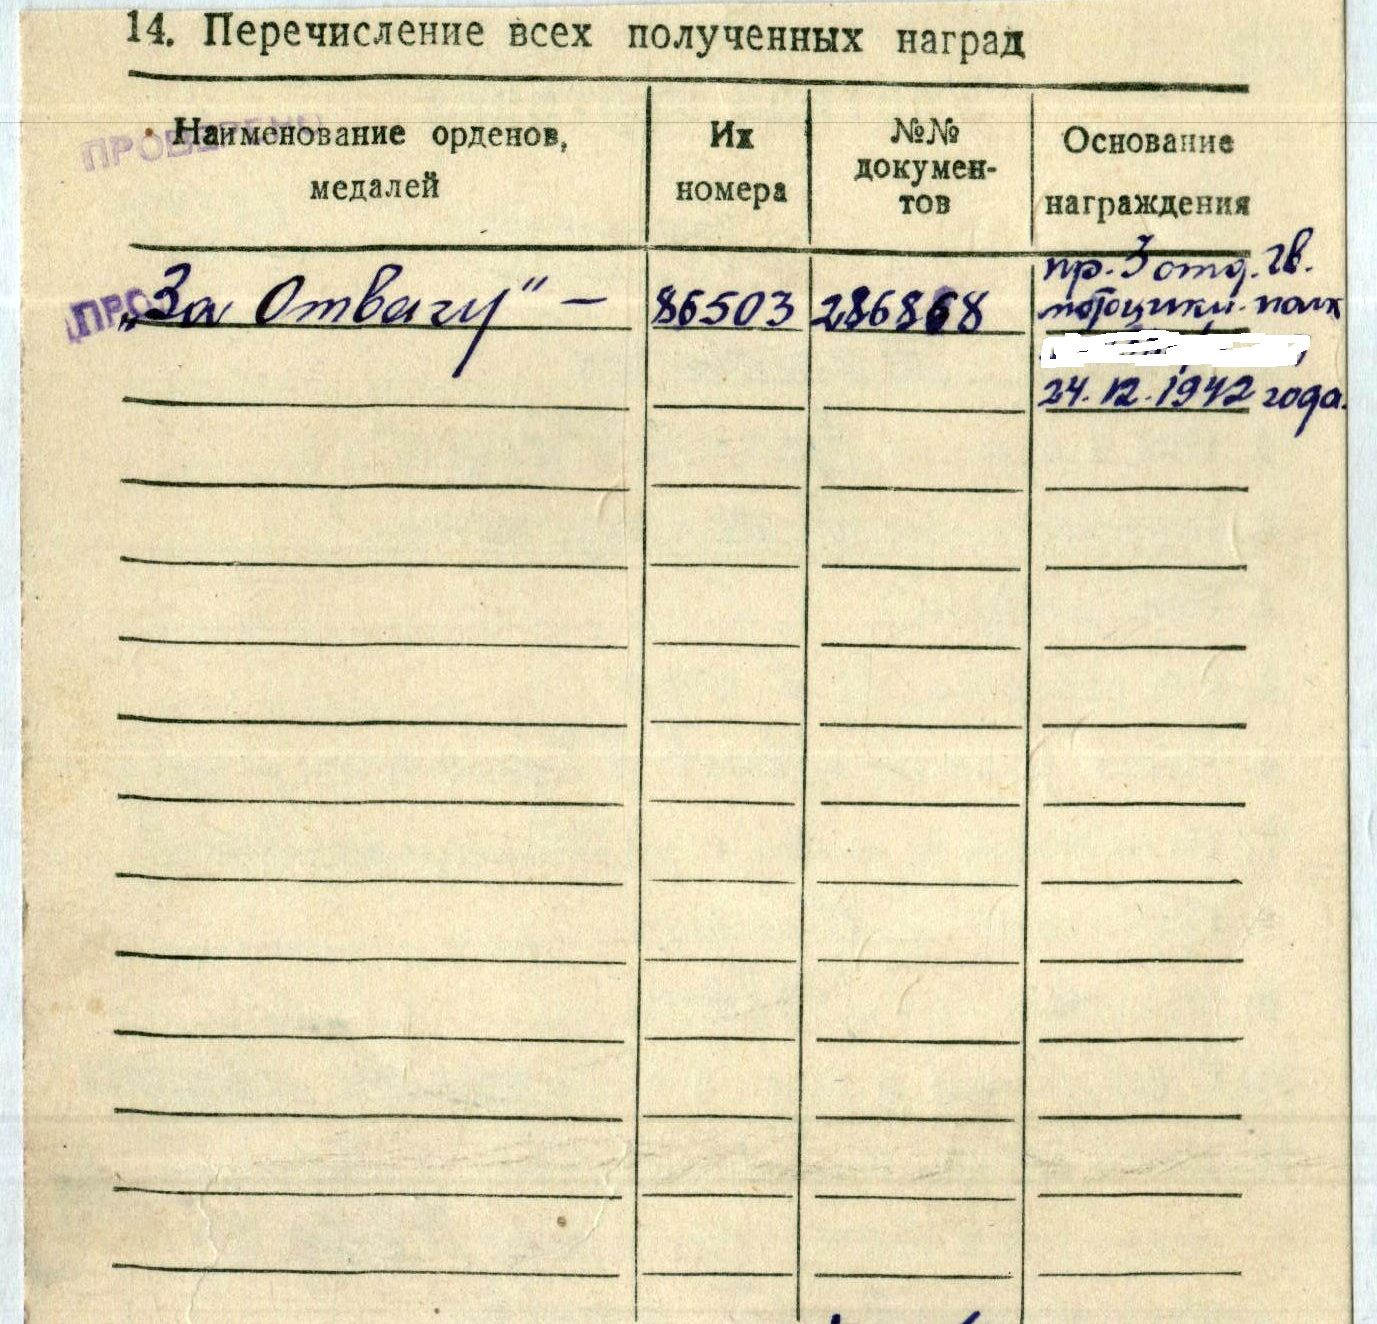 14. Перечисление всех полученных наград
Наименование орденов,
медалей
Их
номера
№№
докумен-
тов
Основание
награждения
ПРОВЕРЕНО
ПРО
„За Отвагу“ —
86503
286868
пр. 3 отд. гв.
мотоцикл. полк
24.12.1942 года.